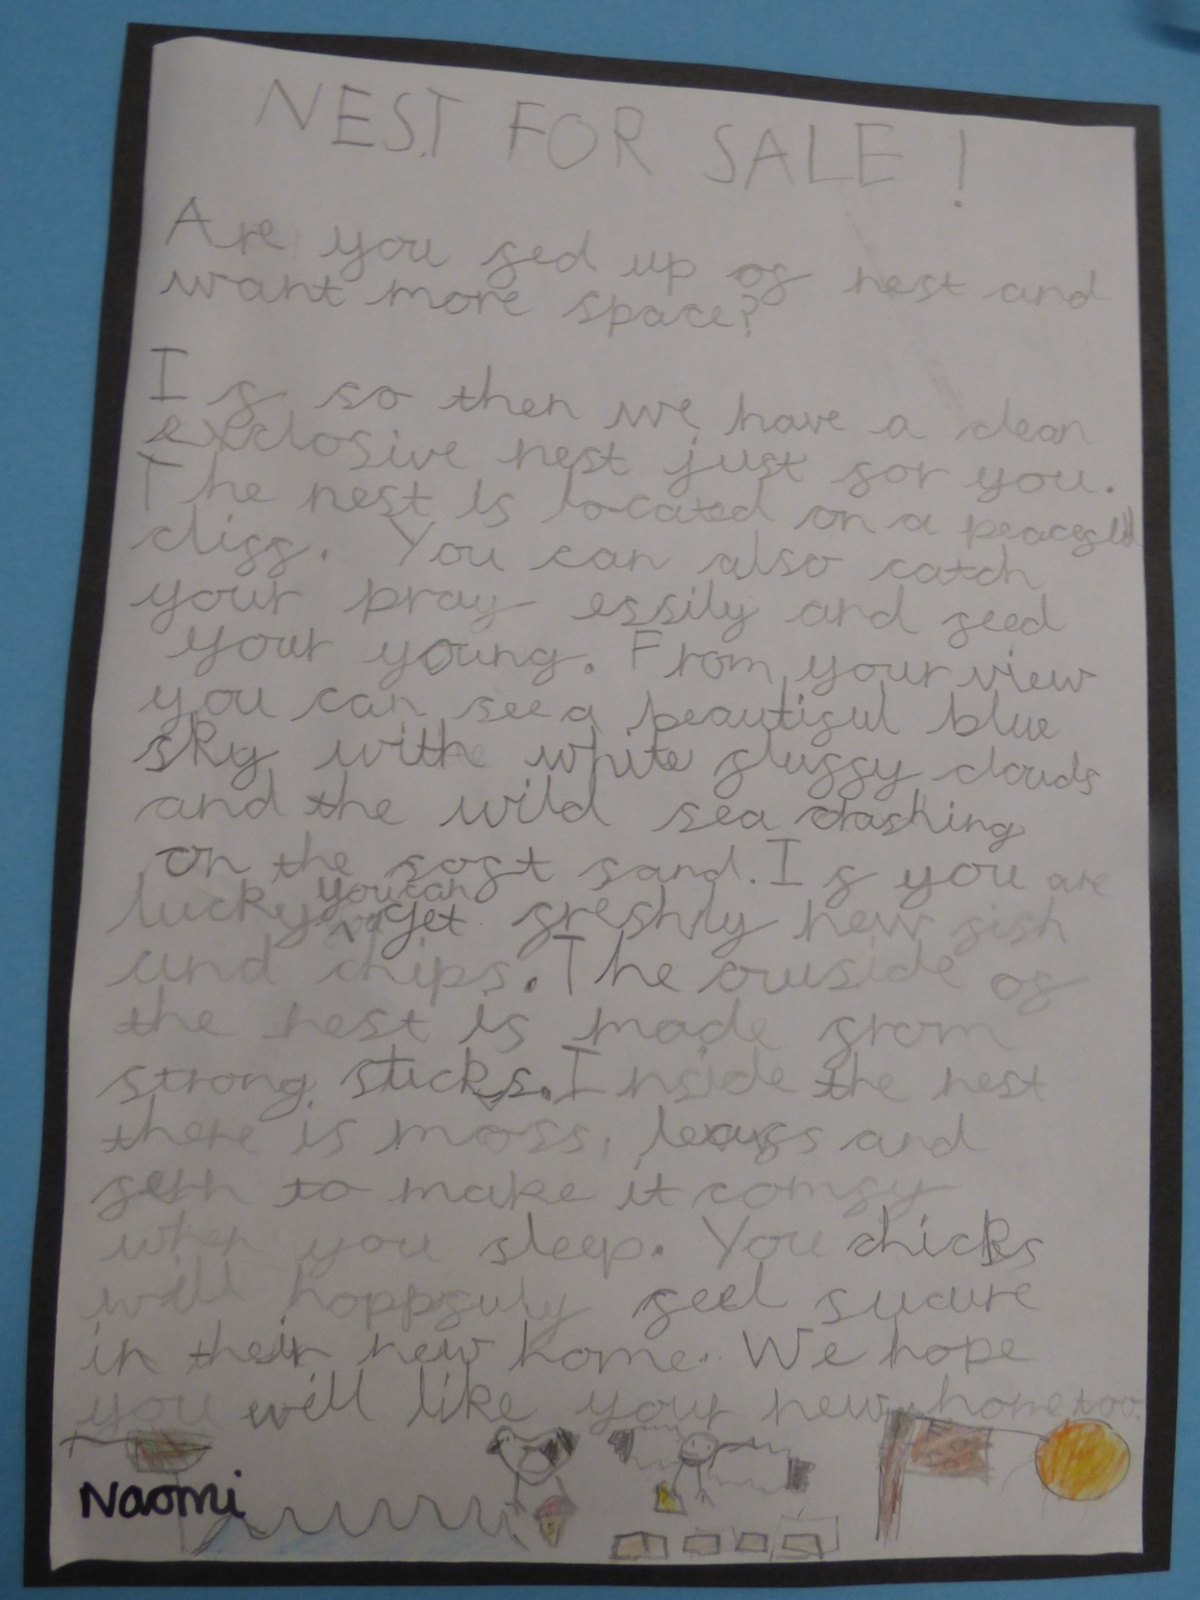 NEST FOR SALE!
Are you fed up of nest and
want more space?
If so then we have a clean
exclosive nest just for you.
The nest is located on a peacefull
cliff. You can also catch
your pray essily and feed
your young. From your view
you can see a beautiful blue
sky with white fluffy clouds
and the wild sea dashing
on the soft sand. If you are
you can
lucky get freshly new fish
and chips. The ouside of
the nest is made from
strong sticks. Inside the nest
there is moss, and
to make it comfy
when you sleep. You chicks
will hoppfuly feel sucure
in their new home. We hope
you will like your new home too.
Naomi